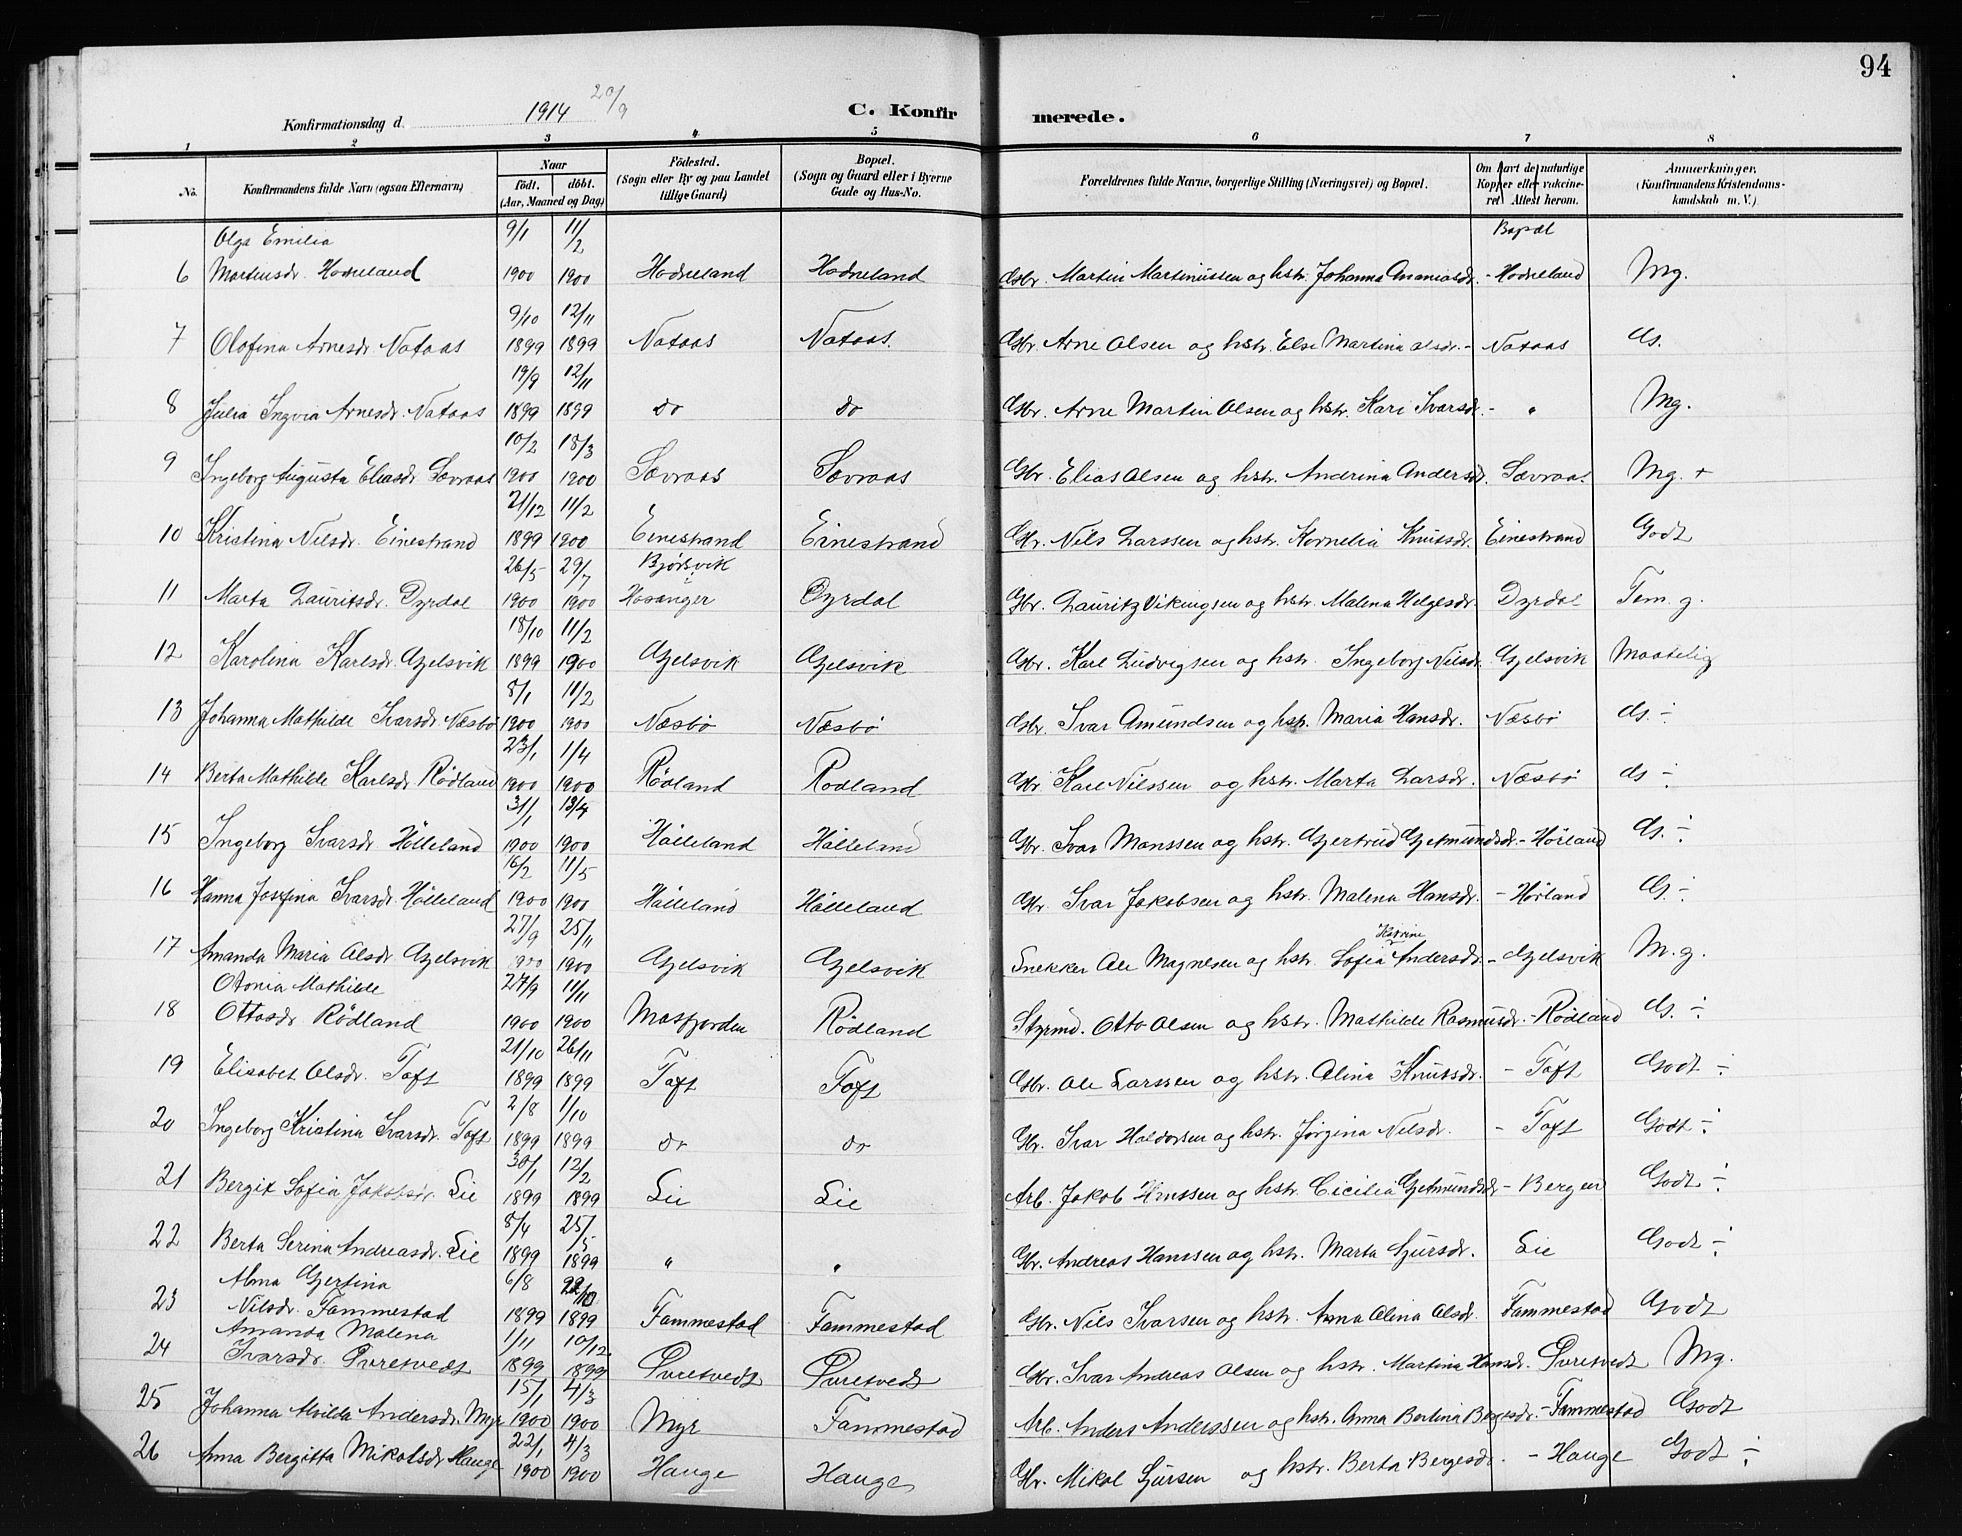 94
1914 20/9
Konfirmationsdag d. C. Konfirmerede.
1 2 3 4 5 6 7 8
No. Konfirmandens fulde Navn (ogsaa Efternavn) Naar födt. döbt. (Aar, Maaned og Dag) Födested. (Sogn eller By og paa Landet tillige Gaard) Bopæl. (Sogn og Gaard eller i Byerne Gade og Hus-No. Forældrenes fulde Navne, borgerlige Stilling (Næringsvei) og Bopæl. Om havt de naturlige Kopper eller vakcineret Attest herom. Anmærkninger. (Konfirmandens Kristendomskundskab m. V.)
Bopæl
Olga Emilia 9/1 11/2
6 Martinsdr. Hodneland 1900 1900 Hodneland Hodneland Gbr. Martin Martinussen og hstr. Johanna Ananiasdr. - Hodneland Mg.
9/10 12/11
7 Olofina Arnesdr Nataas 1899 1899 Nataas Nataas. Gbr. Arne Olsen og hstr. Else Martina Olsdr. - Nataas G.
19/9 12/11
8 Julia Ingvia Arnesdr. Nataas 1899 1899 do do Gbr. Arne Martin Olsen og hstr. Kari Ivarsdr. - " Mg.
10/2 18/3
9 Ingeborg Augusta Eliasdr Sævraas 1900 1900 Sævraas Sævraas Gbr. Elias Olsen og hstr. Andrina Andersdr. Sævraas Mg. +
21/12 11/2
10 Kristina Nilsdr. Einestrand 1899 1900 Einestrand Einestrand Gbr. Nils Larssen og hstr. Kornelia Knutsdr. Einestrand Godt
26/5 29/7 Bjørsvik
11 Marta Lauritsdr. Dyrdal 1900 1900 Hosanger Dyrdal Gbr. Lauritz Vikingsen og hstr. Malena Helgesdr. Dyrdal Tem. g.
18/10 11/2
12 Karolina Karlsdr. Gjelsvik 1899 1900 Gjelsvik Gjelsvik Gbr. Karl Ludvigsen og hstr. Ingeborg Nilsdr. Gjelsvik Maatelig
8/1 11/2
13 Johanna Mathilde Ivarsdr. Næsbø 1900 1900 Næsbø Næsbø Gbr. Ivar Amundsen og hstr. Maria Hansdr. Næsbø G. ÷
23/1 1/4
14 Berta Mathilde Karlsdr Rødland 1900 1900 Rødland Rødland Gbr Karl Nilssen og hstr. Marta Larsdr. Næsbø G ÷
31/1 13/4
15 Ingeborg Ivarsdr Hølleland 1900 1900 Hølleland Hølleland Gbr. Ivar Monssen og hstr. Gjertrud Gjetmundsdr. - Hørland G. ÷
16/2 11/5
16 Hanna Josefina Ivarsdr Hølleland 1900 1900 Hølleland Hølleland Gbr. Ivar Jakobsen og hstr. Malena Hansdr. - Hørland G ÷
27/9 25/11 Katrine
17 Amanda Maria Olsdr Gjelsvik 1900 1900 Gjelsvik Gjelsvik Snekker Ole Magnesen og hstr. Sofia Andersdr. - Gjelsvik M. g.
Otonia Mathilde 27/9 11/11
18 Ottosdr Rødland 1900 1900 Masfjorden Rødland Styrmd. Otto Olsen og hstr. Mathilde Rasmusdr. - Rødland G. ÷
21/10 26/11
19 Elisabet Olsdr. Toft 1899 1899 Toft Toft Gbr. Ole Larssen og hstr. Olina Knutsdr. - Toft Godt ÷
2/8 1/10
20 Ingeborg Kristina Ivarsdr. Toft 1899 1899 do do Gbr. Ivar Haldorsen og hstr. Jørgina Nilsdr. - Toft Godt ÷
30/1 12/2
21 Bergit Sofia Jakobsdr. Lie 1899 1899 Lie Lie Arb. Jakob Hanssen og hstr. Cicilia Gjetmundsdr - Bergen Godt ÷
8/4 25/5
22 Berta Serina Andreasdr. Lie 1899 1899 " " Gbr. Andreas Hanssen og hstr. Marta Sjursdr. Lie Godt ÷
Alma Gjertina 6/8 22/10
23 Nilsdr. Fammestad 1899 1899 Fammestad Fammestad Gbr. Nils Ivarsen og hstr. Anna Olina Olsdr. Fammestad Godt
Amanda Malena 1/11 10/12
24 Ivarsdr. Øvretvedt 1899 1899 Øvretvedt Øvretvedt Gbr. Ivar Andreas Olsen og hstr. Martina Hansdr. Øvretvedt Mg.
15/1 4/3
25 Johanna Alvilda Andersdr. Myr 1900 1900 Myr Fammestad Arb. Anders Anderssen og hstr. Anna Bertina Bergesdr. - Fammestad Godt
22/1 4/3
26 Anna Bergitta Mikolsdr Hauge 1900 1900 Hauge Hauge Gbr. Mikol Sjursen og hstr. Berta Bergesdr. - Hauge Godt ÷